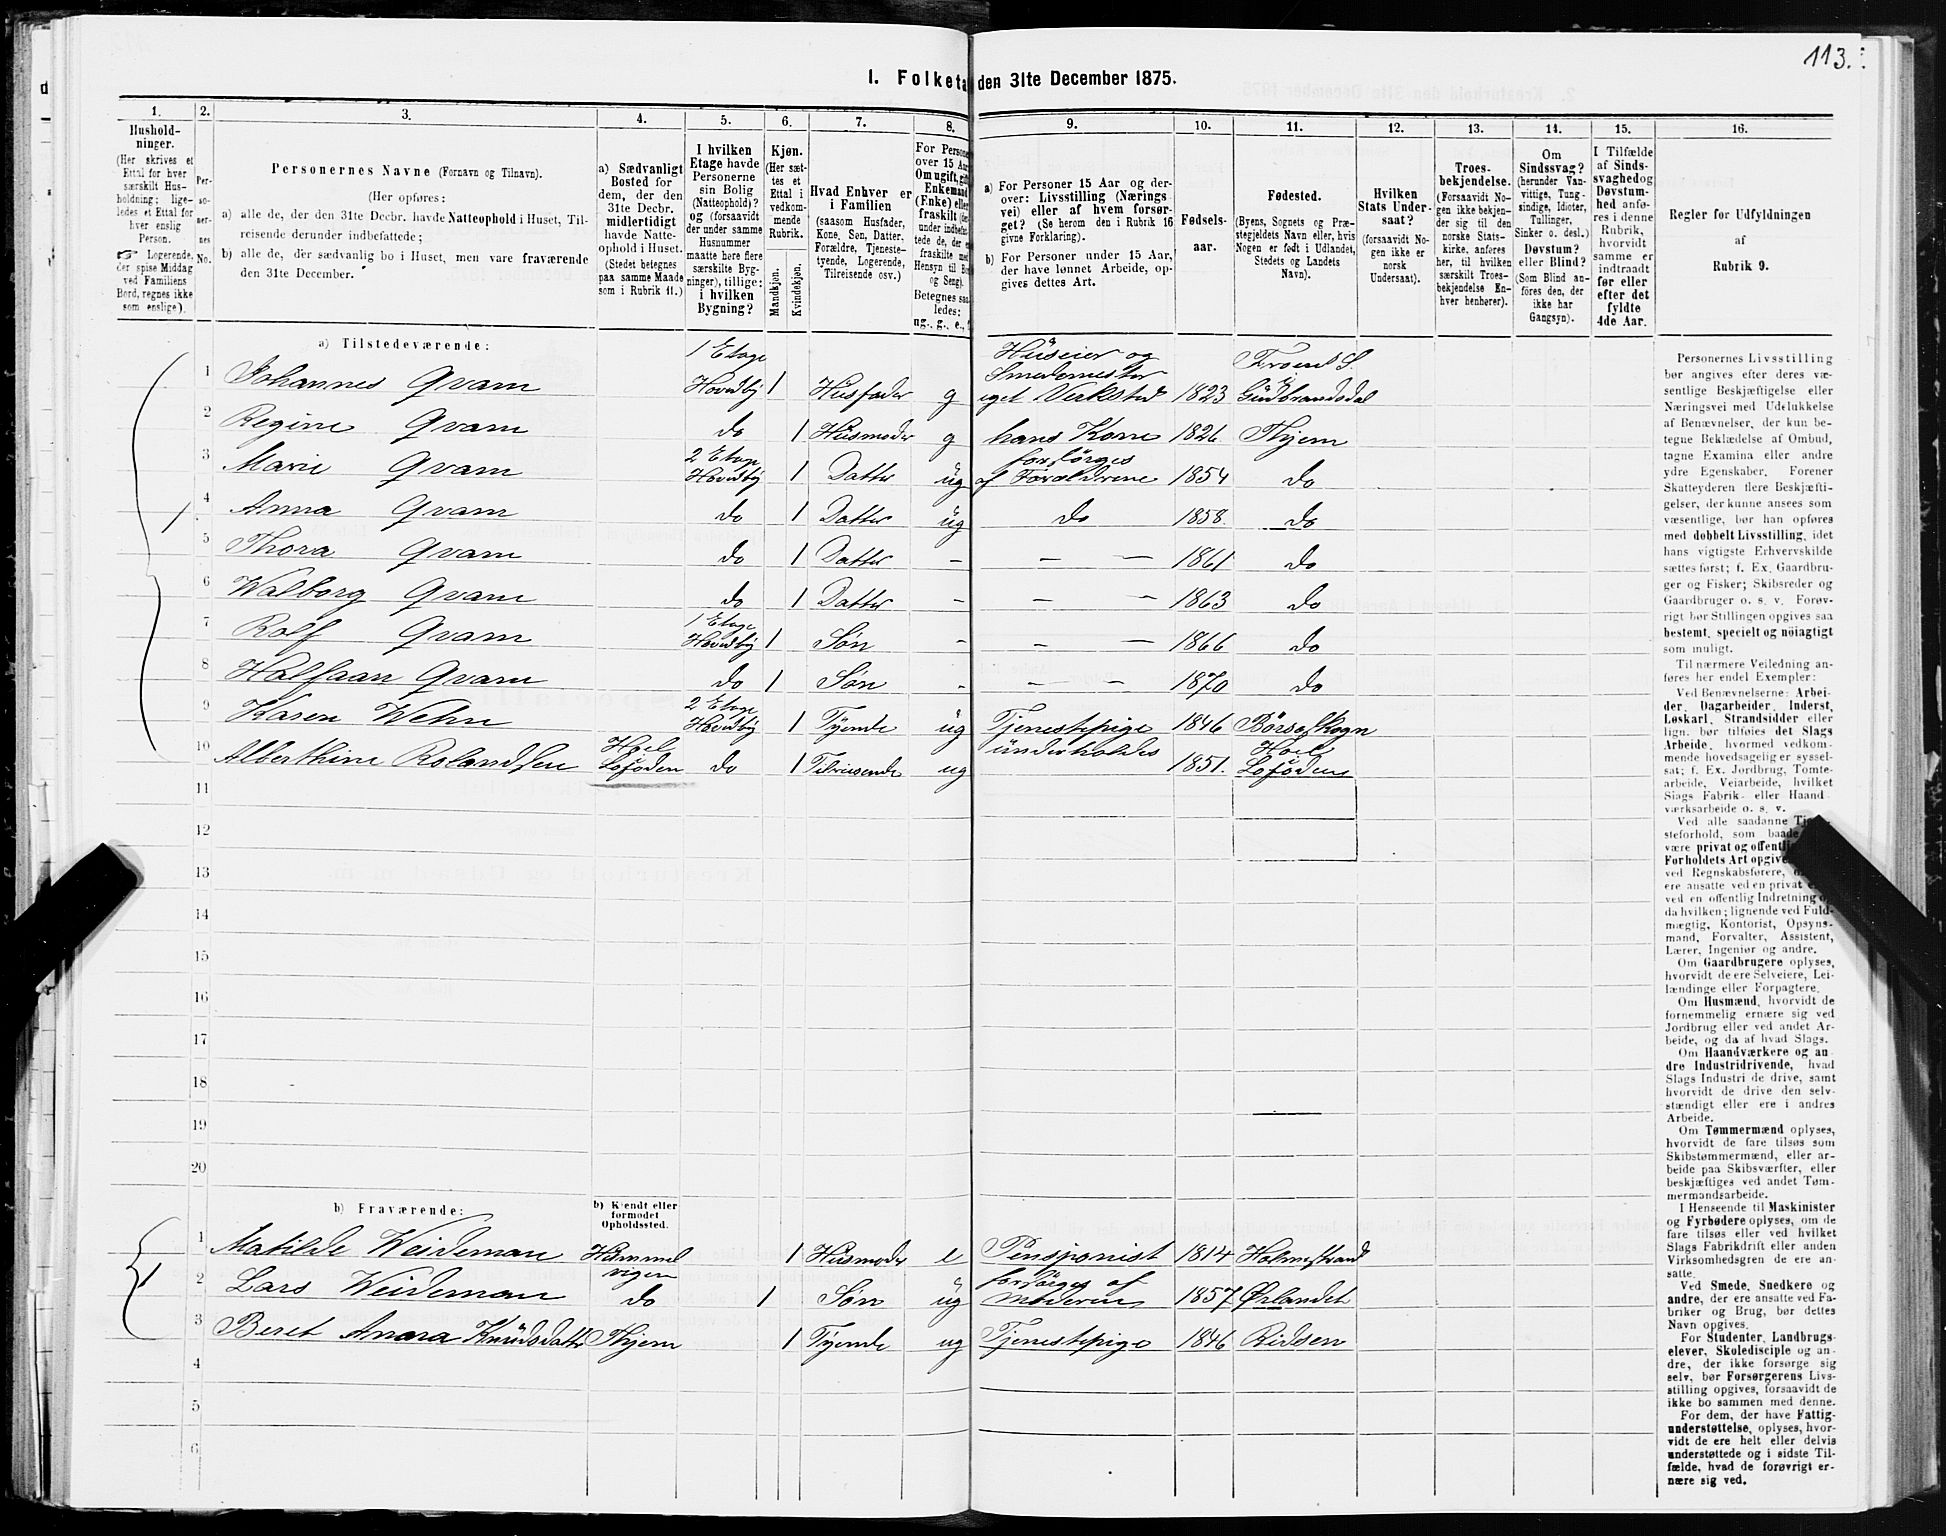 113.
1. Folketa den 31te December 1875.
1. 2. 3. 4. 5. 6. 7. 8. 9. 10. 11. 12. 13. 14. 15. 16.
Hushold-
ninger.
(Her skrives et
Ettal for hver
særskilt Hus-
holdning; lige-
ledes et Ettal for
hver enslig
Person.
☞ Logerende,
der spise Middag
ved Familiens
Bord, regnes ikke
som enslige).
Per-
so-
ner-
nes
No.
Personernes Navne (Fornavn og Tilnavn).
(Her opføres:
a) alle de, der den 31te Decbr. havde Natteophold i Huset, Til-
reisende derunder indbefattede;
b) alle de, der sædvanlig bo i Huset, men vare fraværende
den 31te December.
a) Sædvanligt
Bosted for
dem, der den
31te Decbr.
midlertidigt
havde Natte-
ophold i Huset.
(Stedet betegnes
paa samme Maade
som i Rubrik 11.)
I hvilken
Etage havde
Personerne
sin Bolig
(Natteophold)?
og (forsaavidt
der under samme
Husnummer
maatte høre flere
særskilte Byg-
ninger), tillige:
i hvilken
Bygning?
Kjøn.
(Her sæt-
tes et
Ettal i
vedkom-
mende
Rubrik.
Mandkjøn.
Kvindekjøn.
Hvad Enhver er
i Familien
(saasom Husfader,
Kone, Søn, Datter,
Forældre, Tjeneste-
tyende, Logerende,
Tilreisende osv.)
For Persone
over 15 Aa
Om ugift, gift
Enkemand
(Enke) elle
fraskilt (der
under indbefat-
tede de, der e
fraskilte med
Hensyn til Bo
og Seng).
Betegnes saa
ledes:
ug., g., e., f
a) For Personer 15 Aar og der-
over: Livsstilling (Nærings-
vei) eller af hvem forsør-
get? (Se herom den i Rubrik 16
givne Forklaring).
b) For Personer under 15 Aar,
der have lønnet Arbeide, op-
gives dettes Art.
Fødsels-
aar.
Fødested.
(Byens, Sognets og Præ-
stegjeldets Navn eller, hvis
Nogen er født i Udlandet,
Stedets og Landets
Navn).
Hvilken
Stats Under-
saat?
(forsaavidt No-
gen ikke er
norsk
Undersaat).
Troes-
bekjendelse.
(Forsaavidt No-
gen ikke bekjen-
der sig til den
norske Stats-
kirke, anføres
her, til hvilken
særskilt Troes-
bekjendelse En-
hver henhører).
Om
Sindssvag?
(herunder Van-
vittige, Tung-
sindige, Idioter,
Tullinger,
Sinker o. desl.)
Døvstum?
eller Blind?
(Som Blind an-
føres den, der
ikke har
Gangsyn).
I Tilfælde
af Sinds-
svaghed og
Døvstum-
hed anfø-
res i denne
Rubrik,
hvorvidt
samme er
indtraadt
før eller
efter det
fyldte
4de Aar.
Regler for Udfyldningen
af
Rubrik 9.
a) Tilstedeværende:
1 Johannes Qvam 1 Etage Hovedby 1 Husfader g Huseier og Smedemester eget Verksted 1823 Froen S. Gudbrandsdal
2 Regine Qvam do 1 Husmoder g hans Kone 1826 Thjem
3 Marie Qvam 2 Etage Hovedby 1 Datter ug forsørges af Forældrene 1854 do
1 4 Anna Qvam do 1 Datter ug do 1858. do
5 Thora Qvam do 1 Datter – – – 1861 do
6 Walborg Qvam do 1 Datter – – – 1863 do
7 Rolf Qvam 1 Etage Hovedby 1 Søn – – – 1866 do
8 Halfdan Qvam do 1 Søn – – – 1870 do
9 Karen Wehn 2 Etage Hovedby 1 Tyende ug Tjenestepige 1846 Børseskogn
10 Alberthine Rolandsen Hoel Lofoden do 1 Tilreisende ug underholdes 1851. Hoel Lofoden
11
12
13
14
15
16
17
18
19
20
b) Fraværende:
b) Kjendt eller
formodet
Opholdssted.
1 Matilde Weideman Hammelvigen 1 Husmoder e Pensjonist 1814 Holmestrand
1 2 Lars Weideman do 1 Søn ug forsørges af Moderen 1857 Ørlandet
3 Beret Anna Knudsdatter Thjem 1 Tyende ug Tjenestepige 1846 Ridsen
4
5
6
Personernes Livsstilling
bør angives efter deres væ-
sentlige Beskjæftigelse eller
Næringsvei med Udelukkelse
af Benævnelser, der kun be-
tegne Beklædelse af Ombud,
tagne Examina eller andre
ydre Egenskaber. Forener
Skatteyderen flere Beskjæfti-
gelser, der kunne ansees som
væsentlige, bør han opføres
med dobbelt Livsstilling, idet
hans vigtigste Erhvervskilde
sættes først; f. Ex. Gaardbru-
ger og Fisker; Skibsreder og
Gaardbruger o. s. v. Forøv-
rigt bør Stillingen opgives saa
bestemt, specielt og nøiagtigt
som muligt.
Til nærmere Veiledning an-
føres her endel Exempler:
Ved Benævnelserne: Arbei-
der, Dagarbeider, Inderst,
Løskarl, Strandsidder eller
lign. bør tilføies det Slags
Arbeide, hvormed vedkom-
mende hovedsagelig er syssel-
sat; f. Ex. Jordbrug, Tomte-
arbeide, Veiarbeide, hvilket
Slags Fabrik- eller Haand-
værksarbeide o. s. v.
Ved alle saadanne Tje
steforhold, som baade
være privat og offentli
Forholdets Art opgive
ved Regnskabsførere,
ere ansatte ved en privat
ved en offentlig Indretning
da hvilken; lignende ved Fuld-
mægtig, Kontorist, Opsyns-
mand, Forvalter, Assistent,
Lærer, Ingeniør og andre.
Om Gaardbrugere oplyses,
hvorvidt de ere Selveiere, Lei-
lændinge eller Forpagtere.
Om Husmænd, hvorvidt de
fornemmelig ernære sig ved
Jordbrug eller ved andet Ar-
beide, og da af hvad Slags.
Om Haandværkere og an-
dre Industridrivende, hvad
Slags Industri de drive, samt
hvorvidt de drive den selv-
stændigt eller ere i andres
Arbeide.
Om Tømmermænd oplyses,
hvorvidt de fare tilsøs som
Skibstømmermænd, eller ar-
beide paa Skibsværfter, eller
beskjæftiges ved andet Tøm-
mermandsarbeide.
I Henseende til Maskinister
og Fyrbødere oplyses, om de
fare tilsøs eller ved hvilket
Slags Fabrikdrift eller anden
Virksomhedsgren de ere an-
satte.
Ved Smede, Snedkere og
andre, der ere ansatte ved Fa-
briker og Brug, bør dettes
Navn opgives.
For Studenter, Landbrugs-
elever, Skoledisciple og an-
dre, der ikke forsørge sig
selv, bør Forsørgerens Livs-
stilling opgives, forsaavidt de
ikke bo sammen med denne.
For dem, der have Fattig-
understøttelse, oplyses, hvor-
vidt de ere helt eller delvis
understøttede og i sidste Til-
fælde, hvad de forøvrigt er-
nære sig ved.